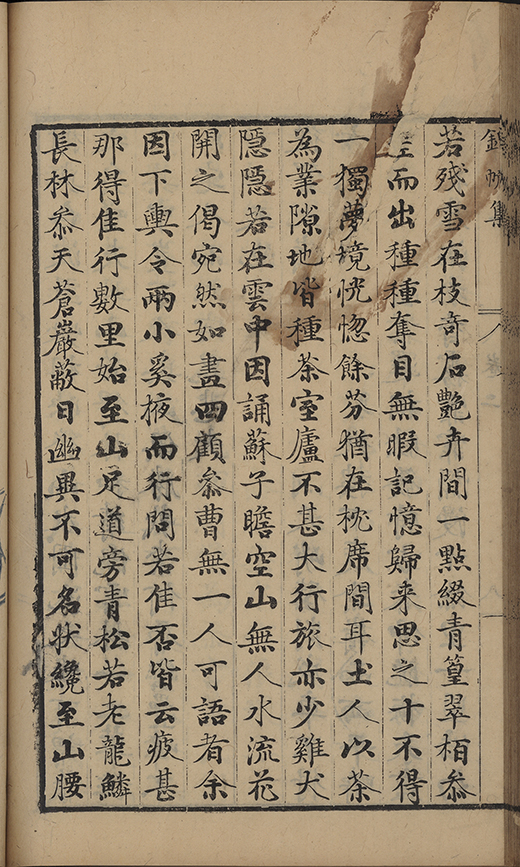 錦帆集
若殘雪在枝奇石艷卉間一點綴青篁翠栢叅
差而出種種奪目無暇記憶歸来思之十不得
一獨夢境恍惚餘芬猶在枕席間耳土人以茶
為業隙地皆種茶室廬不甚大行旅亦少雞犬
隱隱若在雲中因誦蘇子瞻空山無人水流花
開之偈宛然如畫四顧叅曹無一人可語者余
因下輿令兩小奚掖而行問若佳否皆云疲甚
那得佳行數里始至山足道旁青松若老龍鱗
長林叅天蒼巖蔽日幽異不可名状纔至山腰